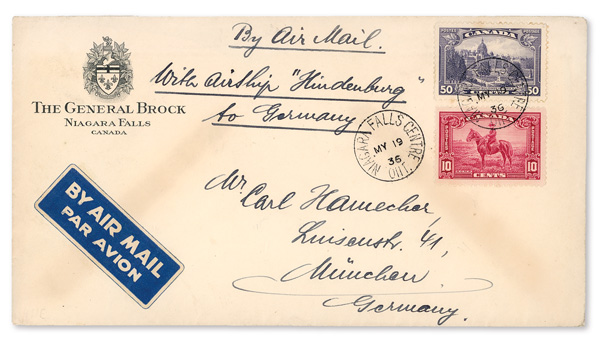 By Air Mail.
With Airship "Hindenburg"
to Germany
THE GENERAL BROCK
NIAGARA FALLS
CANADA
POSTES POSTAGE
CANADA
50 50
NIAGARA FALLS CENTRE
MY 19
36
ONT.
MY
36
CANADA
10 10
CENTS
BY AIR MAIL
PAR AVION
Mr Carl Hamecher
Luisenstr. 41,
München
Germany.